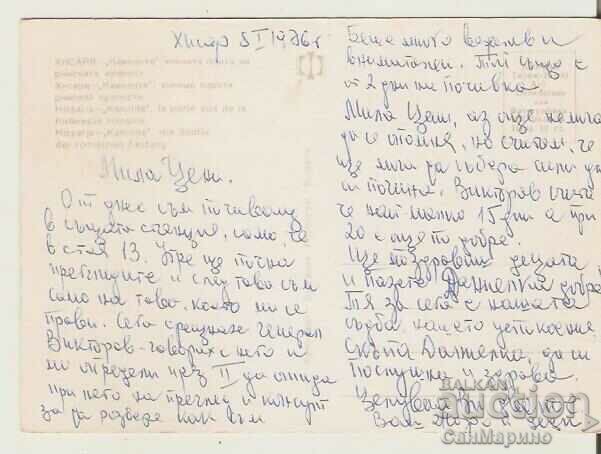 Хисар 5 I 1976 г
ХИСАРЯ. „Камилите" южната порта на
римската крепост
Хисаря. „Камилите", южные ворота
римской крепости
Hissaria. „Kamilité", la porte sud de la
forteresse romaine
Hissarja. „Kamilite", die Südtor
der römischen Festung
Мила Цени.
От днес съм почивящ
в същата станция, само, че
в стая 13. Утре ще почна
прегледите и след това съм
само на това, което ми се
прави. Сега срещнахме генерал
Викторов - говорих с него и
ми определи през II да отида
при него на преглед и консулт
за да разбере как съм
Беше много ведълив и
внимателен. Той също е
от 2 дни на почивка.
Мила Цени, аз още не мога
да се опомня, но считам, че
ще мога да събера сили да
си почина. Викторов счита
че най-малко 15 дни а при
20 е още по добре.
Ще поздравиш децата
и пазете Даниелка добре
Тя за сега е нашата
съдба, нашето успокоение
Скъпа Даниелка, да си
послушна и здрава.
Целувам
Ваш и дядо
BALKAN
auction
СанМарино